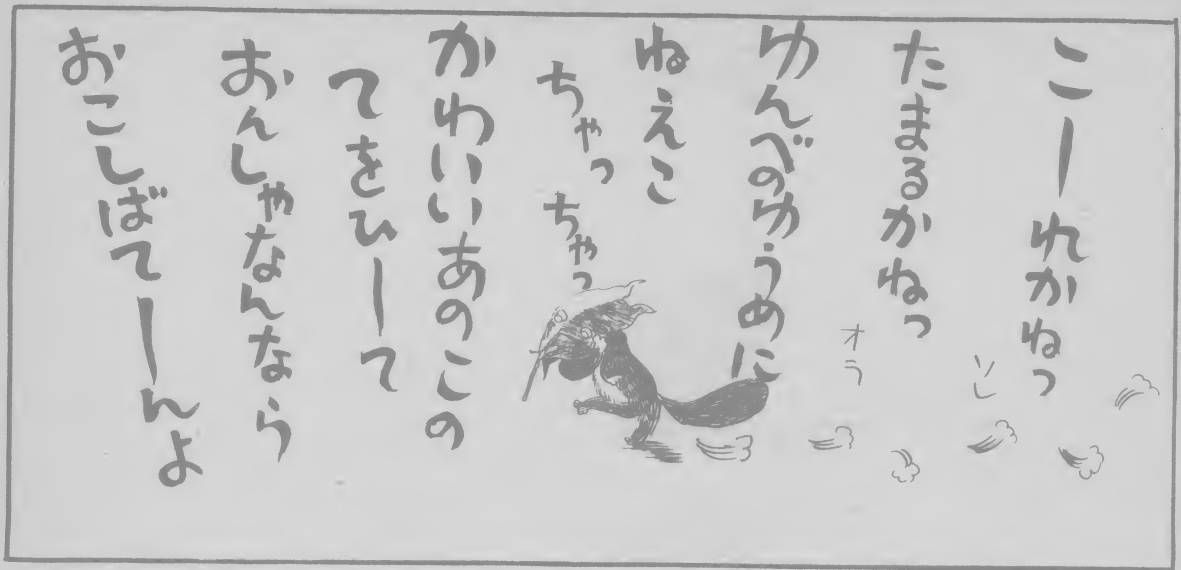 こーれかねっ
たまるかねっ
ゆんべのゆうめに
ねえこ
ちゃっ
ちゃっ
かわいいあのこの
てをひーて
おんしゃなんなら
おこしばてーんよ
ソレ
オラ